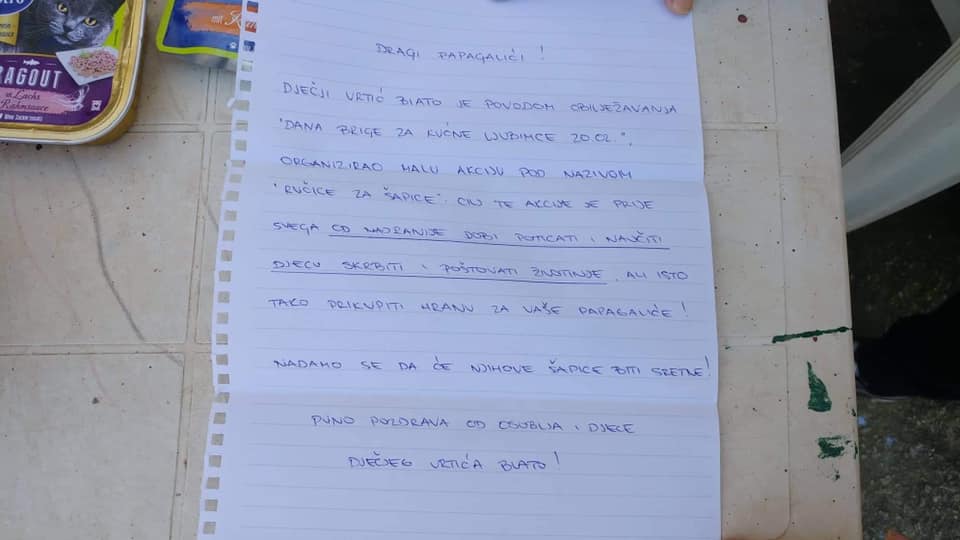 RAGOUT
in Lachs
Rahmsauce
mit
DRAGI PAPAGALIĆI !
DJEČJI VRTIĆ BLATO JE POVODOM OBILJEŽAVANJA
"DANA BRIGE ZA KUĆNE LJUBIMCE 20.02.",
ORGANIZIRAO MALU AKCIJU POD NAZIVOM
"RUČICE ZA ŠAPICE". CILJ TE AKCIJE JE PRIJE
SVEGA OD NAJRANIJE DOBI POTICATI I NAUČITI
DJECU SKRBITI I POŠTOVATI ŽIVOTINJE, ALI ISTO
TAKO PRIKUPITI HRANU ZA VAŠE PAPAGALIĆE!
NADAMO SE DA ĆE NJIHOVE ŠAPICE BITI SRETNE!
PUNO POZDRAVA OD OSOBLJA I DJECE
DJEČJEG VRTIĆA BLATO!